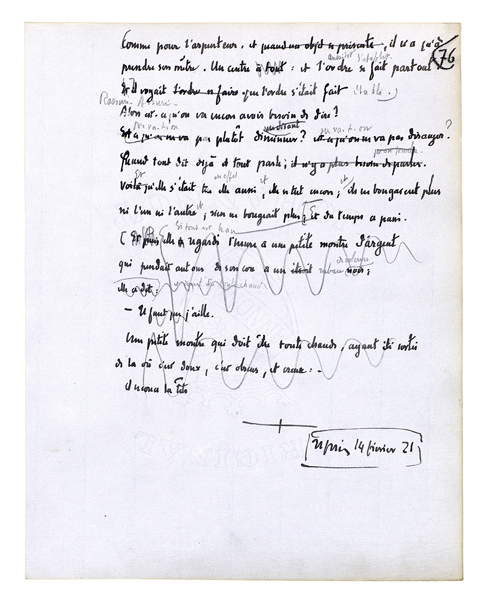 Comme pour l'arpenteur. et quand un objet se présente, il n'a qu'à 76
prendre son mètre. Un centre à tout : et l'ordre se fait partout
Il voyait l'ordre se faire que l'ordre s'était fait établi.
Rassuré
Alors est-ce qu'on va encore avoir besoin de dire?
va-t-on
Est-ce qu'on ne va pas plutôt diminuer? est-ce qu'on ne va pas déranger?
Quand tout dit déjà et tout parle; il n'y a plus besoin de parler.
Voilà qu'elle s'était tue elle aussi, elle se tut encore; ils ne bougeaient plus
ni l'un ni l'autre, rien ne bougeait plus; Et du temps a passé.
Et puis elle regarda l'heure à une petite montre d'argent
qui pendait autour de son cou à un étroit ruban noir;
Elle a dit:
— Il faut que j'aille.
Une petite montre qui doit être toute chaude, ayant été sortie
de là où c'est doux, c'est obscur, et creux:
il secoua la tête
14 février 21